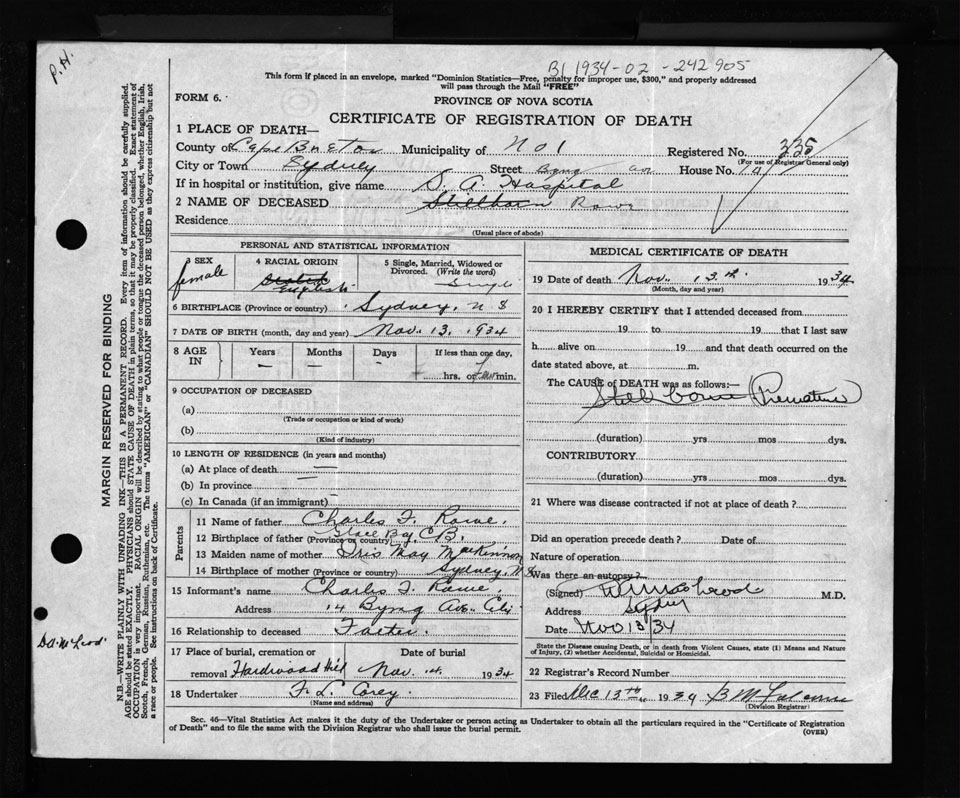 P.H.
B1 1934-02-242905
This form if placed in an envelope, marked "Dominion Statistics—Free, penalty for improper use, $300," and properly addressed
will pass through the Mail "FREE"
FORM 6.
PROVINCE OF NOVA SCOTIA
CERTIFICATE OF REGISTRATION OF DEATH
1 PLACE OF DEATH—
County of Cape Breton Municipality of No 1 Registered No. 335
(For use of Registrar General only)
City or Town Sydney Street House No.
If in hospital or institution, give name S. A. Hospital
2 NAME OF DECEASED Stillborn Rowe
Residence
(Usual place of abode)
PERSONAL AND STATISTICAL INFORMATION
3 SEX female
4 RACIAL ORIGIN Scotch English
5 Single, Married, Widowed or Divorced. (Write the word) Single
6 BIRTHPLACE (Province or country) Sydney, N S
7 DATE OF BIRTH (month, day and year) Nov. 13, 1934
8 AGE IN Years — Months — Days — If less than one day, hrs. or min.
9 OCCUPATION OF DECEASED
(a)
(Trade or occupation or kind of work)
(b)
(Kind of industry)
10 LENGTH OF RESIDENCE (in years and months)
(a) At place of death —
(b) In province —
(c) In Canada (if an immigrant)
Parents
11 Name of father Charles F. Rowe.
12 Birthplace of father (Province or country) Glace Bay, C.B.
13 Maiden name of mother Iris May MacKinnon
14 Birthplace of mother (Province or country) Sydney, N.S.
15 Informant's name Charles F. Rowe
Address 14 Byng Ave. City
16 Relationship to deceased Father.
17 Place of burial, cremation or removal Hardwood Hill Date of burial Nov. 1934
18 Undertaker F. L. Corey.
(Name and address)
MEDICAL CERTIFICATE OF DEATH
19 Date of death Nov. 13th. 1934
(Month, day and year)
20 I HEREBY CERTIFY that I attended deceased from
19 to 19 that I last saw
h alive on 19 and that death occurred on the
date stated above, at m.
The CAUSE OF DEATH was as follows:—
Still born (Premature)
(duration) yrs mos dys.
CONTRIBUTORY
(duration) yrs mos dys.
21 Where was disease contracted if not at place of death?
Did an operation precede death? Date of
Nature of operation
Was there an autopsy?
(Signed) M.D.
Address Sydney
Date Nov 13/34
State the Disease causing Death, or in death from Violent Causes, state (1) Means and Nature
of Injury, (2) whether Accidental, Suicidal or Homicidal.
22 Registrar's Record Number
23 Filed Dec 13th 1934
(Division Registrar)
Sec. 46—Vital Statistics Act makes it the duty of the Undertaker or person acting as Undertaker to obtain all the particulars required in the "Certificate of Registration
of Death" and to file the same with the Division Registrar who shall issue the burial permit.
(OVER)
MARGIN RESERVED FOR BINDING
N.B.—WRITE PLAINLY WITH UNFADING INK—THIS IS A PERMANENT RECORD. Every item of information should be carefully supplied.
AGE should be stated EXACTLY. PHYSICIANS should STATE CAUSE OF DEATH in plain terms, so that it may be properly classified. Exact statement of
OCCUPATION is very important. RACIAL ORIGIN will be described by stating to what people or tongue the deceased person belonged, whether English, Irish,
Scotch, French, German, Russian, Ruthenian, etc. The terms "AMERICAN" or "CANADIAN" SHOULD NOT BE USED as they express citizenship but not
a race or people. See instructions on back of Certificate.